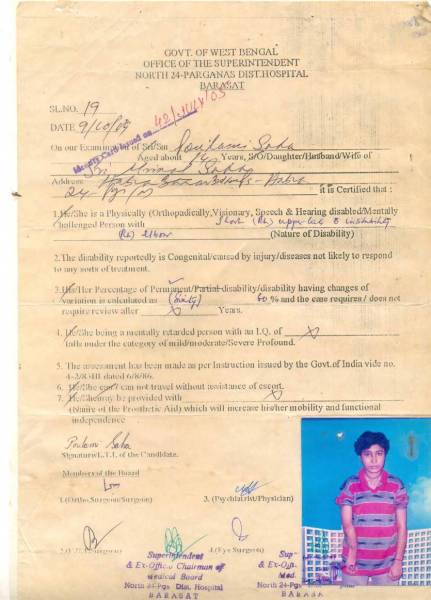 GOVT. OF WEST BENGAL
OFFICE OF THE SUPERINTENDENT
NORTH 24-PARGANAS DIST.HOSPITAL
BARASAT
SL.NO. 19
DATE 9/10/09
Identity Card issued on
On our Examination of Sri/Smt Poulami Saha
Aged about Years, S/O/Daughter/Husband/Wife of
Sri Saha
Address
24-Pgs (N) it is Certified that :
1.He/She is a Physically (Orthopadically,Visionary, Speech & Hearing disabled/Mentally
Challenged Person with Short (Rt) upper limb instability
(Rt) elbow (Nature of Disability)
2.The disability reportedly is Congenital/caused by injury/diseases not likely to respond
to any sorts of treatment.
3.His/Her Percentage of Permanent/Partial disability/disability having changes of
variation is calculated as (Sixty) 60 % and the case requires / does not
require review after X Years.
4. He/She being a mentally retarded person with an I.Q. of X
falls under the category of mild/moderate/Severe Profound.
5. The assessment has been made as per Instruction issued by the Govt.of India vide no.
dated 6/8/86.
6. He/She can/ can not travel without assistance of escort.
7. He/She may be provided with X
(Name of the Prosthetic Aid) which will increase his/her mobility and functional
independence
Poulami Saha
Signature/L.T.I. of the Candidate.
Members of the Board
1.(Ortho.Surgeon/Surgeon)
3. (Psychiatrist/Physician)
4.(Eye Surgeon)
Superintendent
& Ex-Officio Chairman of
Medical Board
North 24-Pgs Dist. Hospital
BARASAT
Sup
& Ex-Offi
Med.
North 24-Pg
BARASA